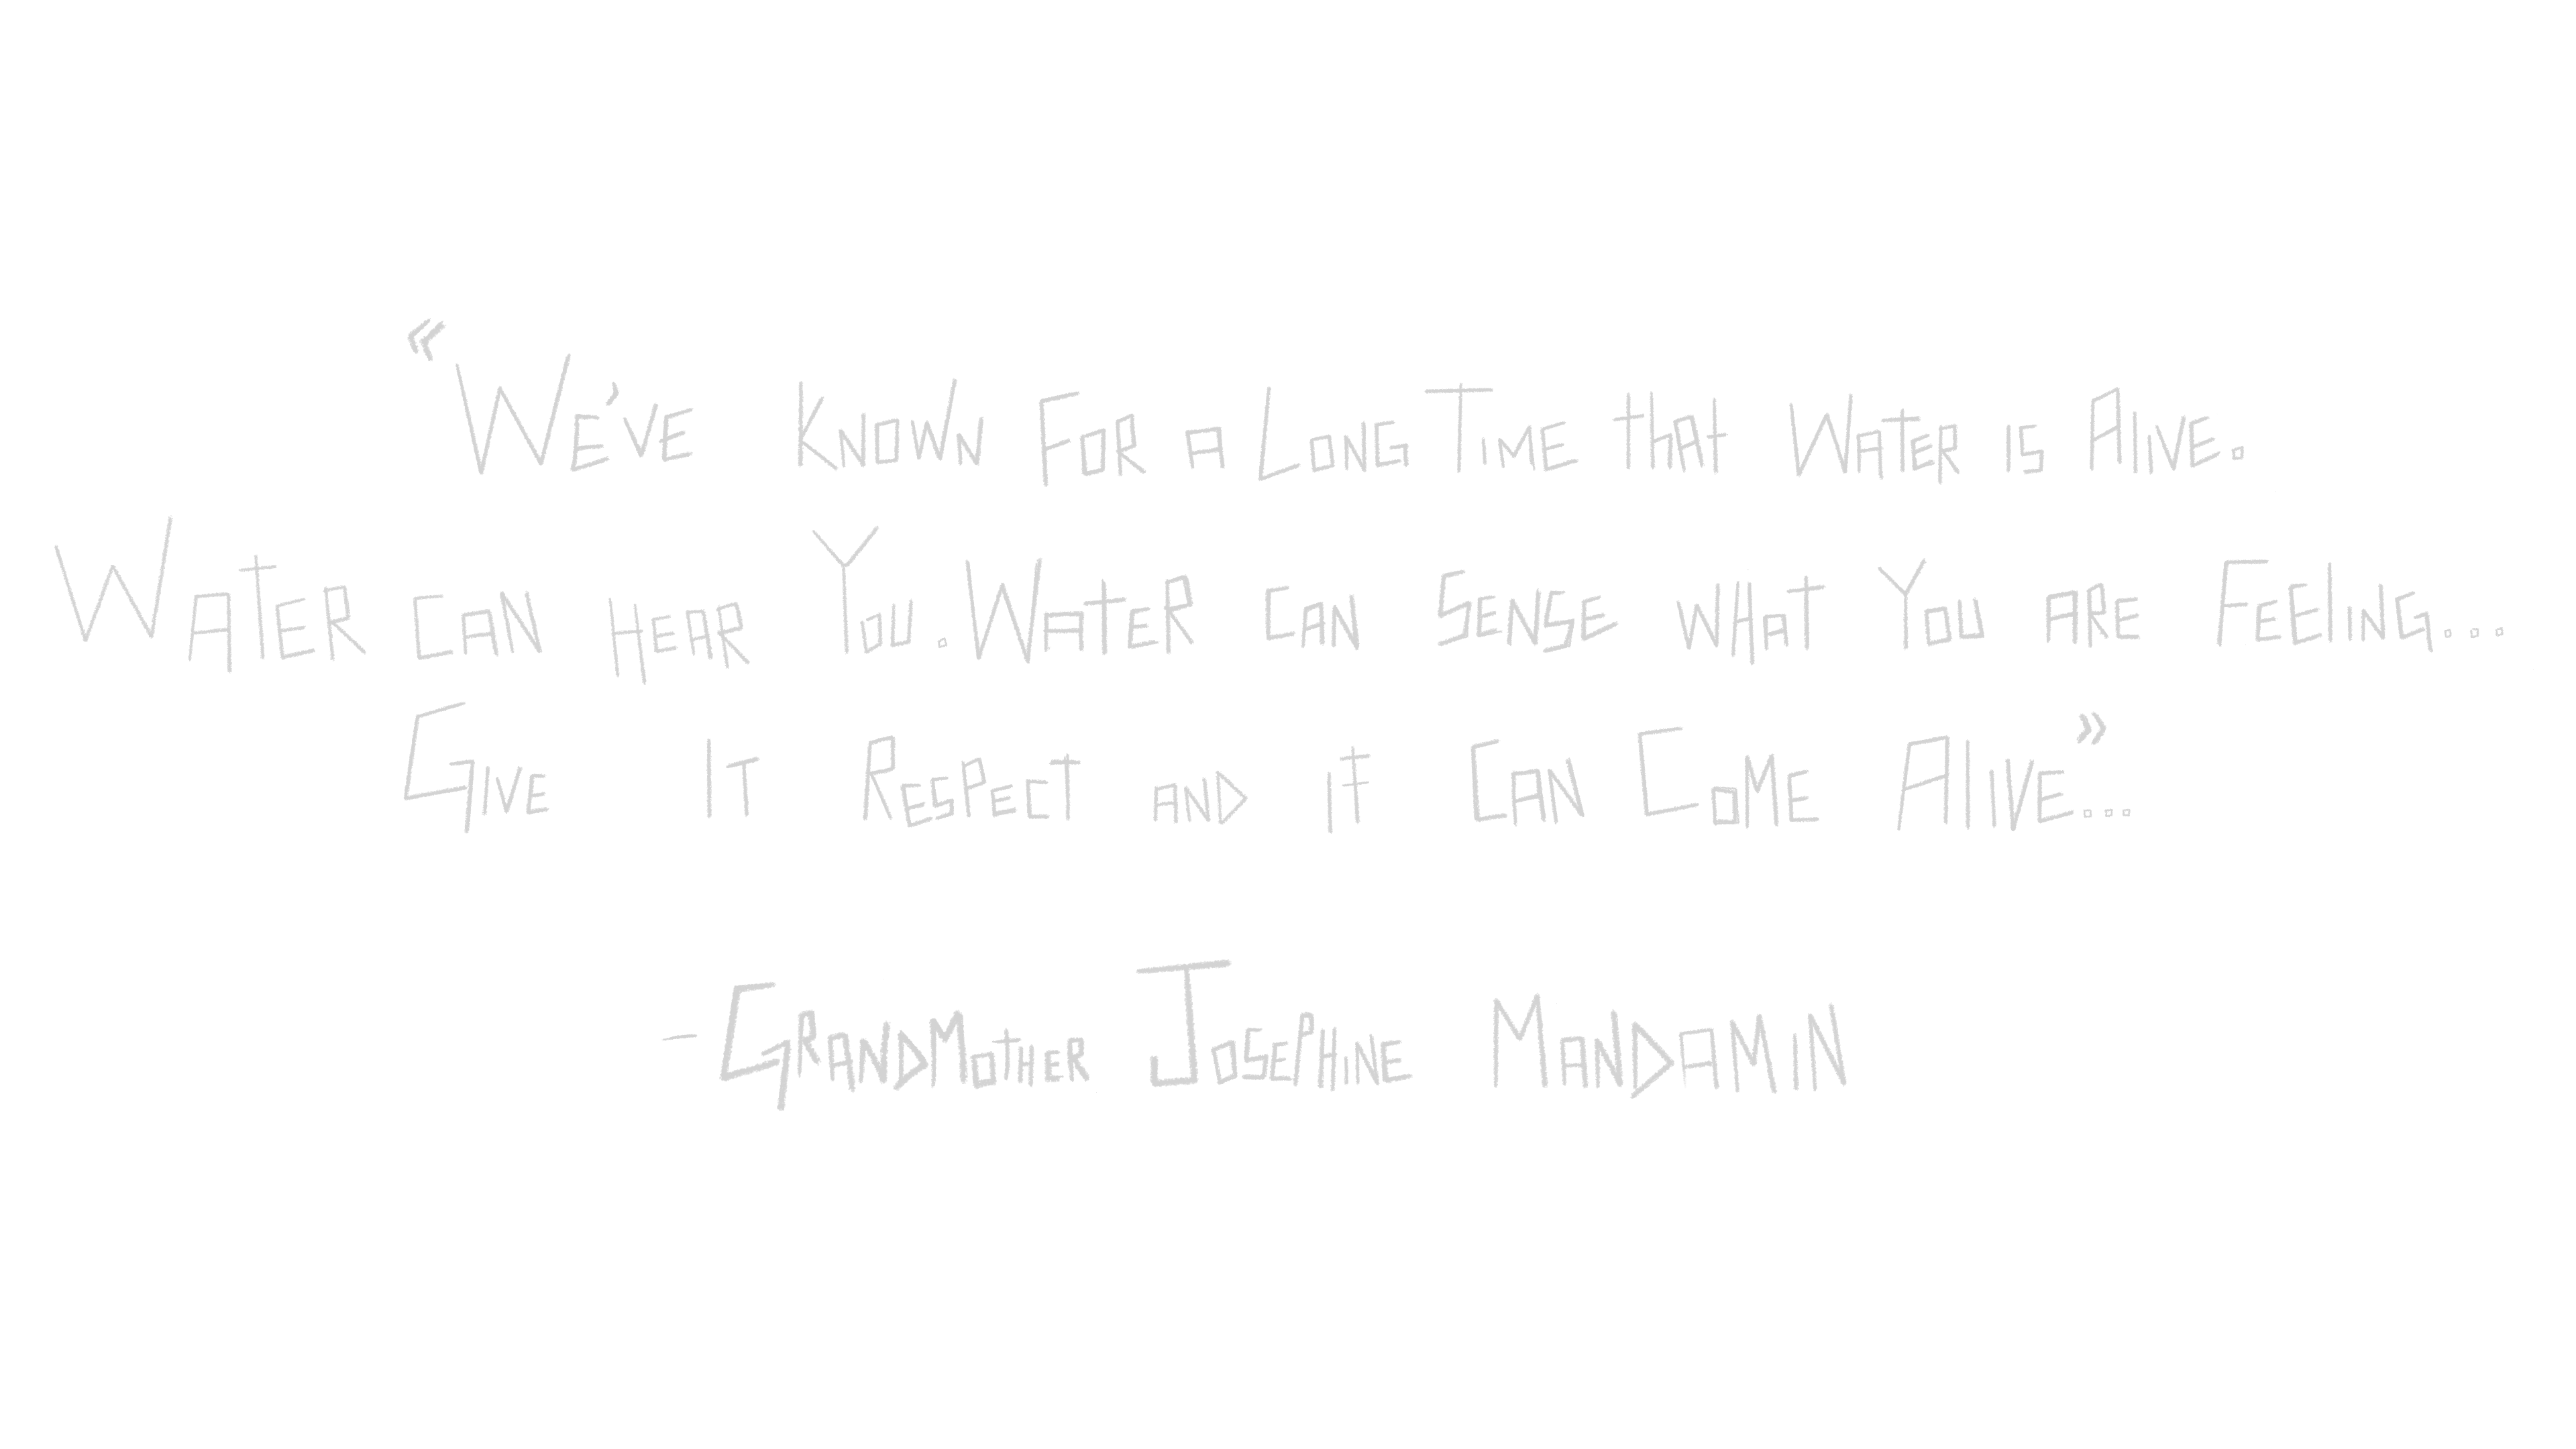 «We've Known For a Long Time that Water is Alive.
Water can hear You. Water can Sense what You are Feeling...
Give It Respect and it Can Come Alive»...
- Grandmother Josephine Mandamin